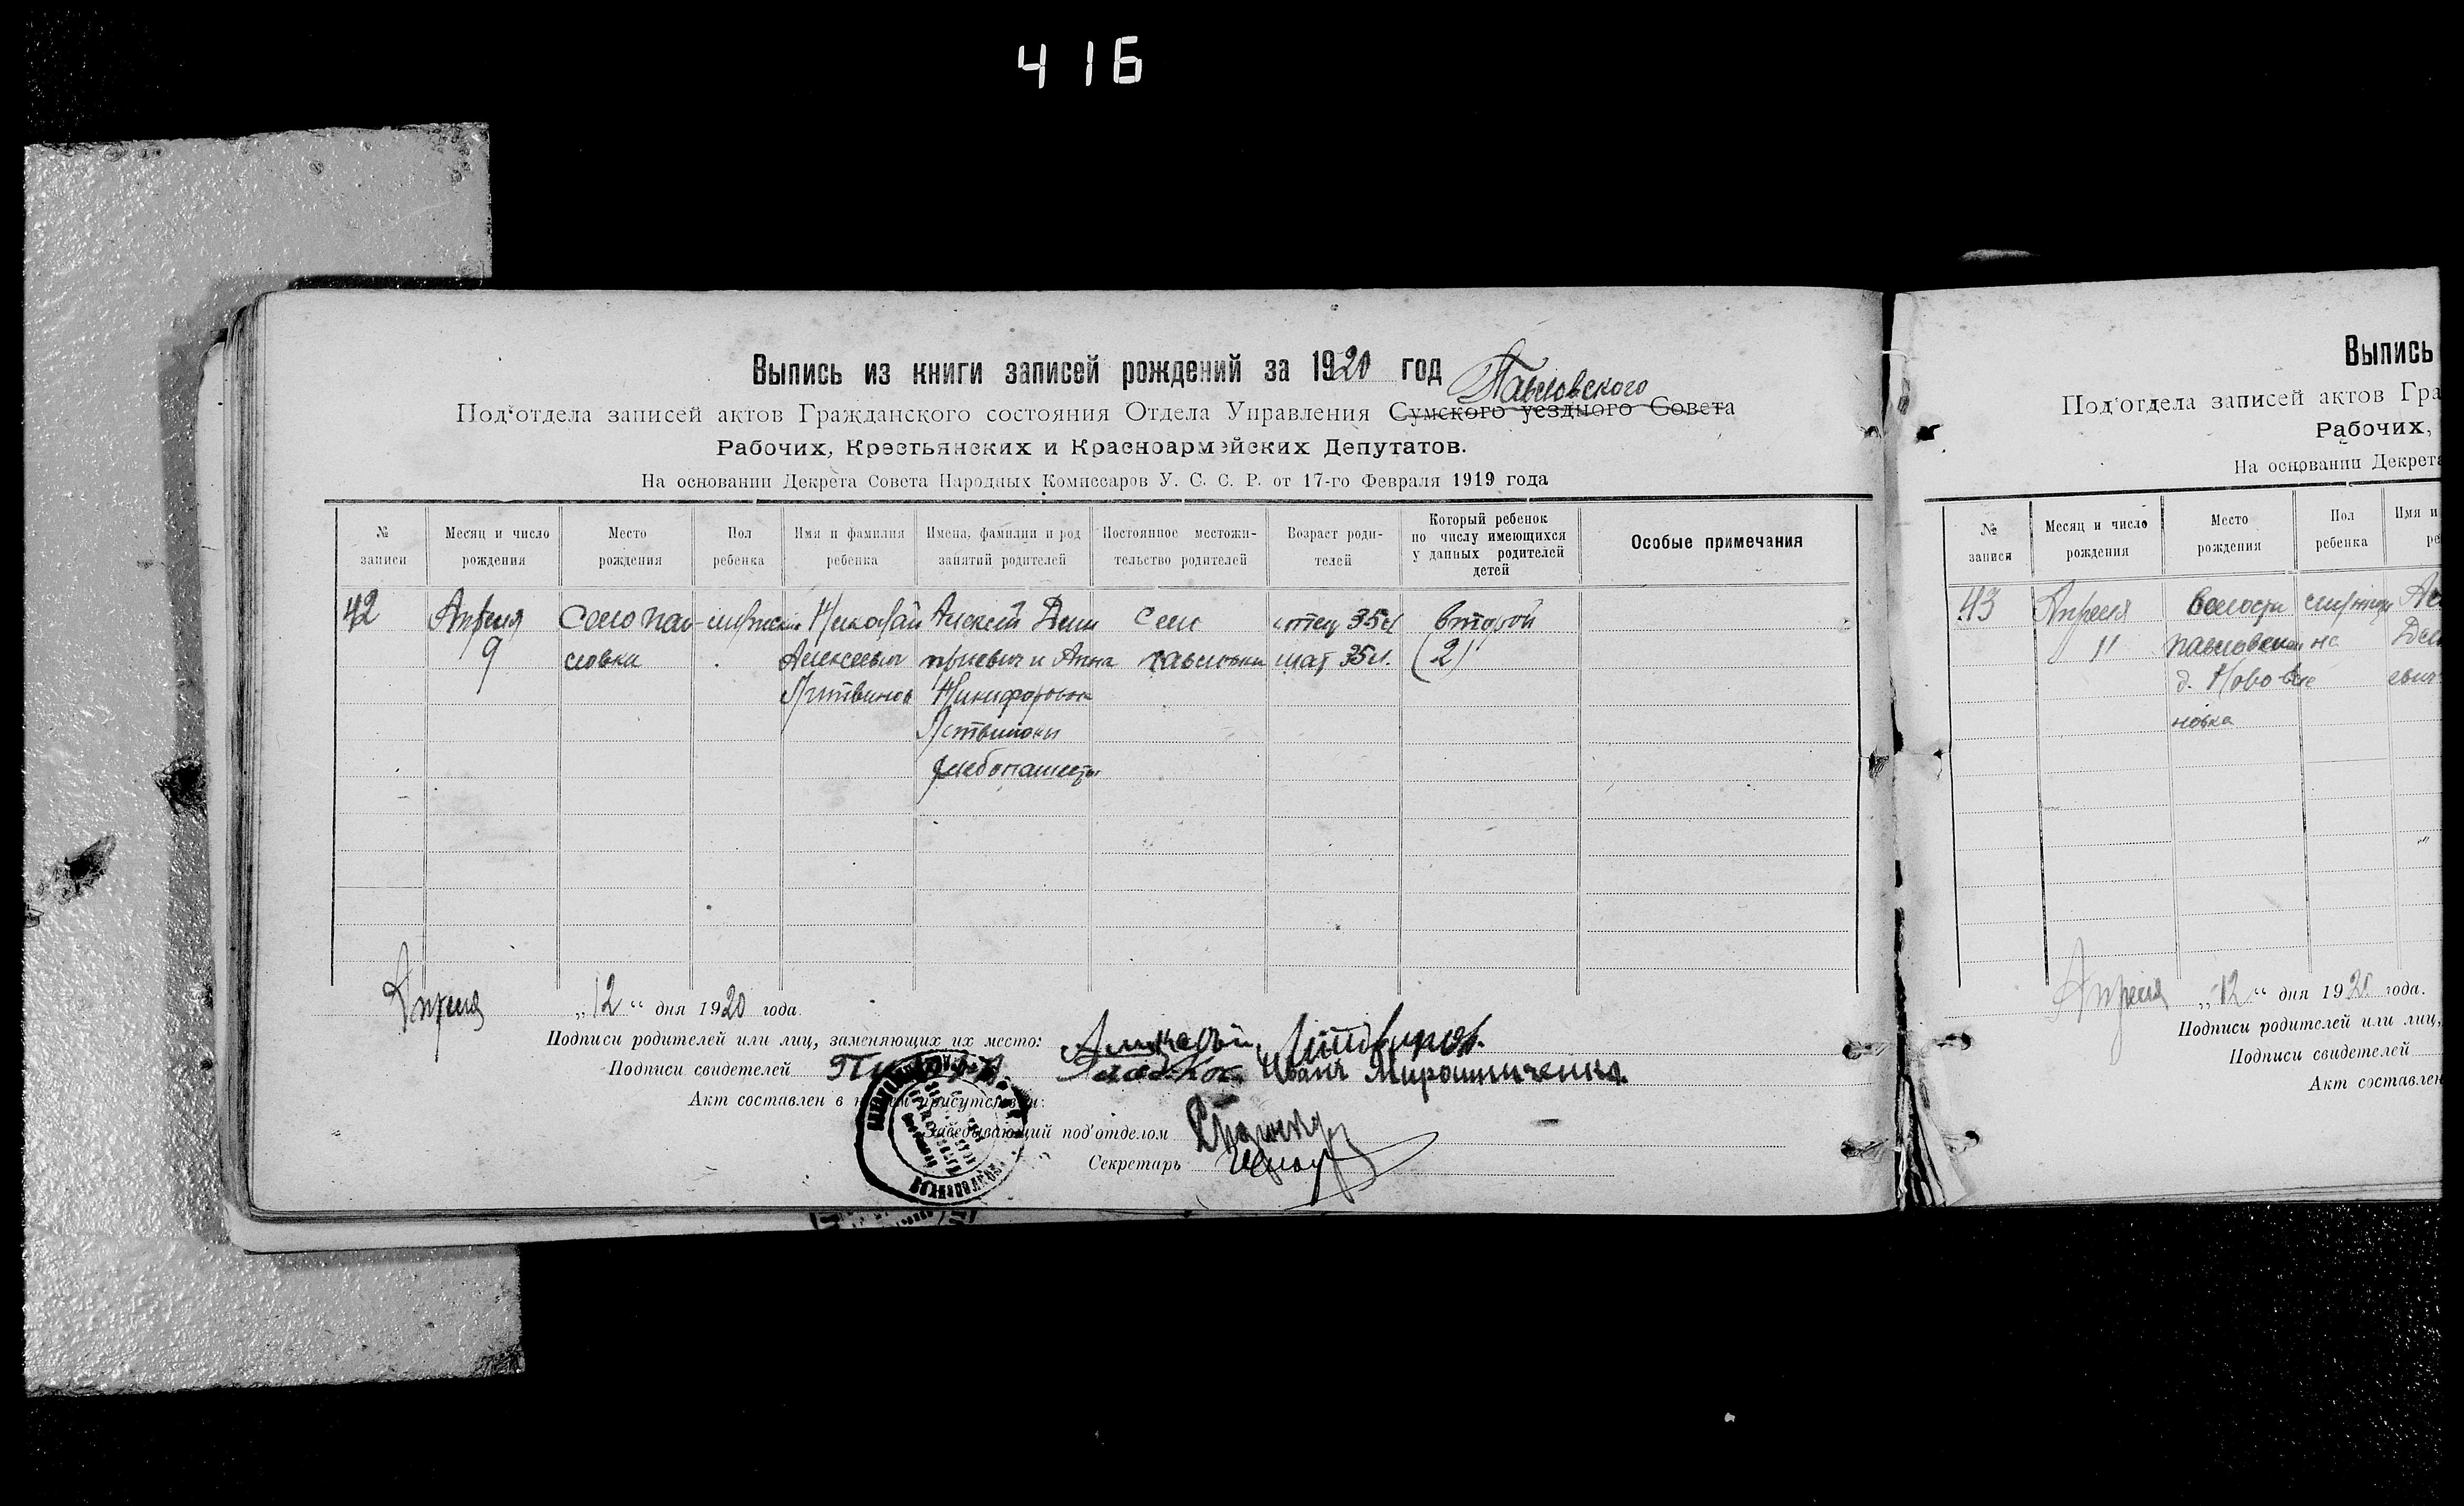 416
Выпись из книги записей рождений за 1920 год
Павловского
Под'отдела записей актов Гражданского состояния Отдела Управления Сумского уездного Совета
Рабочих, Крестьянских и Красноармейских Депутатов.
На основании Декрета Совета Народных Комиссаров У. С. С. Р. от 17-го Февраля 1919 года
№ записи
Месяц и число рождения
Место рождения
Пол ребенка
Имя и фамилия ребенка
Имена, фамилии и род занятий родителей
Постоянное местожи-
тельство родителей
Возраст роди-
телей
Который ребенок
по числу имеющихся
у данных родителей
детей
Особые примечания
42 Апреля Село Пав- Николай Алексей Дми Село отец 35 л второй
9 словка Алексеевич триевич и Анна Павловка мат 35 л. (2)
Литвинов Никифоровна
Литвиновы
хлебопашцы
Апреля „12“ дня 1920 года.
Подписи родителей или лиц, заменяющих их место: Литвинов.
Подписи свидетелей Иванъ Мирошниченко
Акт составлен в присутствии:
Заведывающий под'отделом
Секретарь
Выпись
Под'отдела записей актов Гра
Рабочих,
На основании Декрета
№ записи
Месяц и число рождения
Место рождения
Пол ребенка
Имя и
43 Апреля Волости
11 Павловской
д. Ново
новка
Апреля „12“ дня 1920 года.
Подписи родителей или лиц,
Подписи свидетелей
Акт составлен